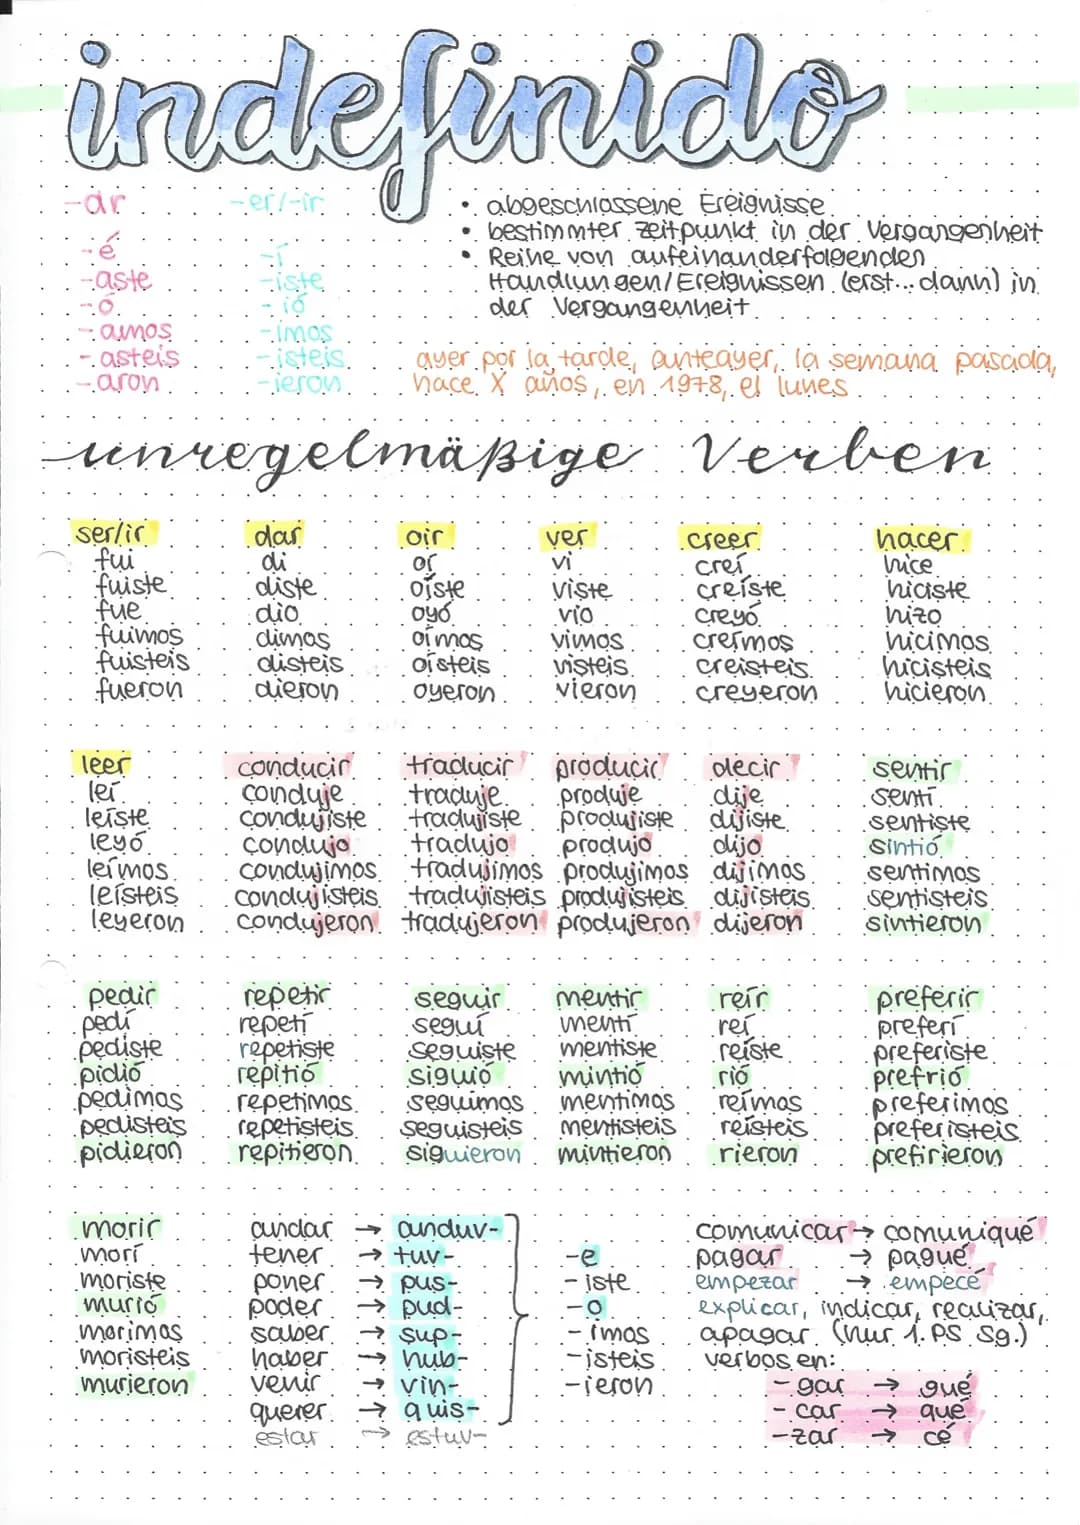 indefinido
-ar -er/-ir
-é -í
-aste -iste
-ó -ió
-amos -imos
-asteis -isteis
-aron -ieron
• abgeschlossene Ereignisse
• bestimmter Zeitpunkt in der Vergangenheit
• Reihe von aufeinanderfolgenden
Handlungen/Ereignissen (erst... dann) in
der Vergangenheit
ayer por la tarde, anteayer, la semana pasada,
hace X años, en 1978, el lunes
unregelmäßige Verben
ser/ir dar oir ver creer hacer
fui di oí vi creí hice
fuiste diste oíste viste creíste hiciste
fue dio oyó vio creyó hizo
fuimos dimos oímos vimos creímos hicimos
fuisteis disteis oísteis visteis creisteis hicisteis
fueron dieron oyeron vieron creyeron hicieron
leer conducir traducir producir decir sentir
leí conduje traduje produje dije sentí
leíste condujiste tradujiste produjiste dijiste sentiste
leyó condujo tradujo produjo dijo sintió
leímos condujimos tradujimos produjimos dijimos sentimos
leísteis condujisteis tradujisteis produjisteis dijisteis sentisteis
leyeron condujeron tradujeron produjeron dijeron sintieron
pedir repetir seguir mentir reír preferir
pedí repetí seguí mentí reí preferí
pediste repetiste seguiste mentiste reíste preferiste
pidió repitió siguió mintió rió prefrió
pedimos repetimos seguimos mentimos reímos preferimos
pedisteis repetisteis seguisteis mentisteis reísteis preferisteis
pidieron repitieron siguieron mintieron rieron prefirieron
morir
morí
moriste
murió
morimos
moristeis
murieron
andar → anduv-
tener → tuv-
poner → pus-
poder → pud-
saber → sup-
haber → hub-
venir → vin-
querer → quis-
estar → estuv-
-e
-iste
-o
-imos
-isteis
-ieron
comunicar → comuniqué
pagar → pagué
empezar → empecé
explicar, indicar, realizar,
apagar (nur 1. PS Sg.)
verbos en:
-gar → gué
-car → qué
-zar → cé